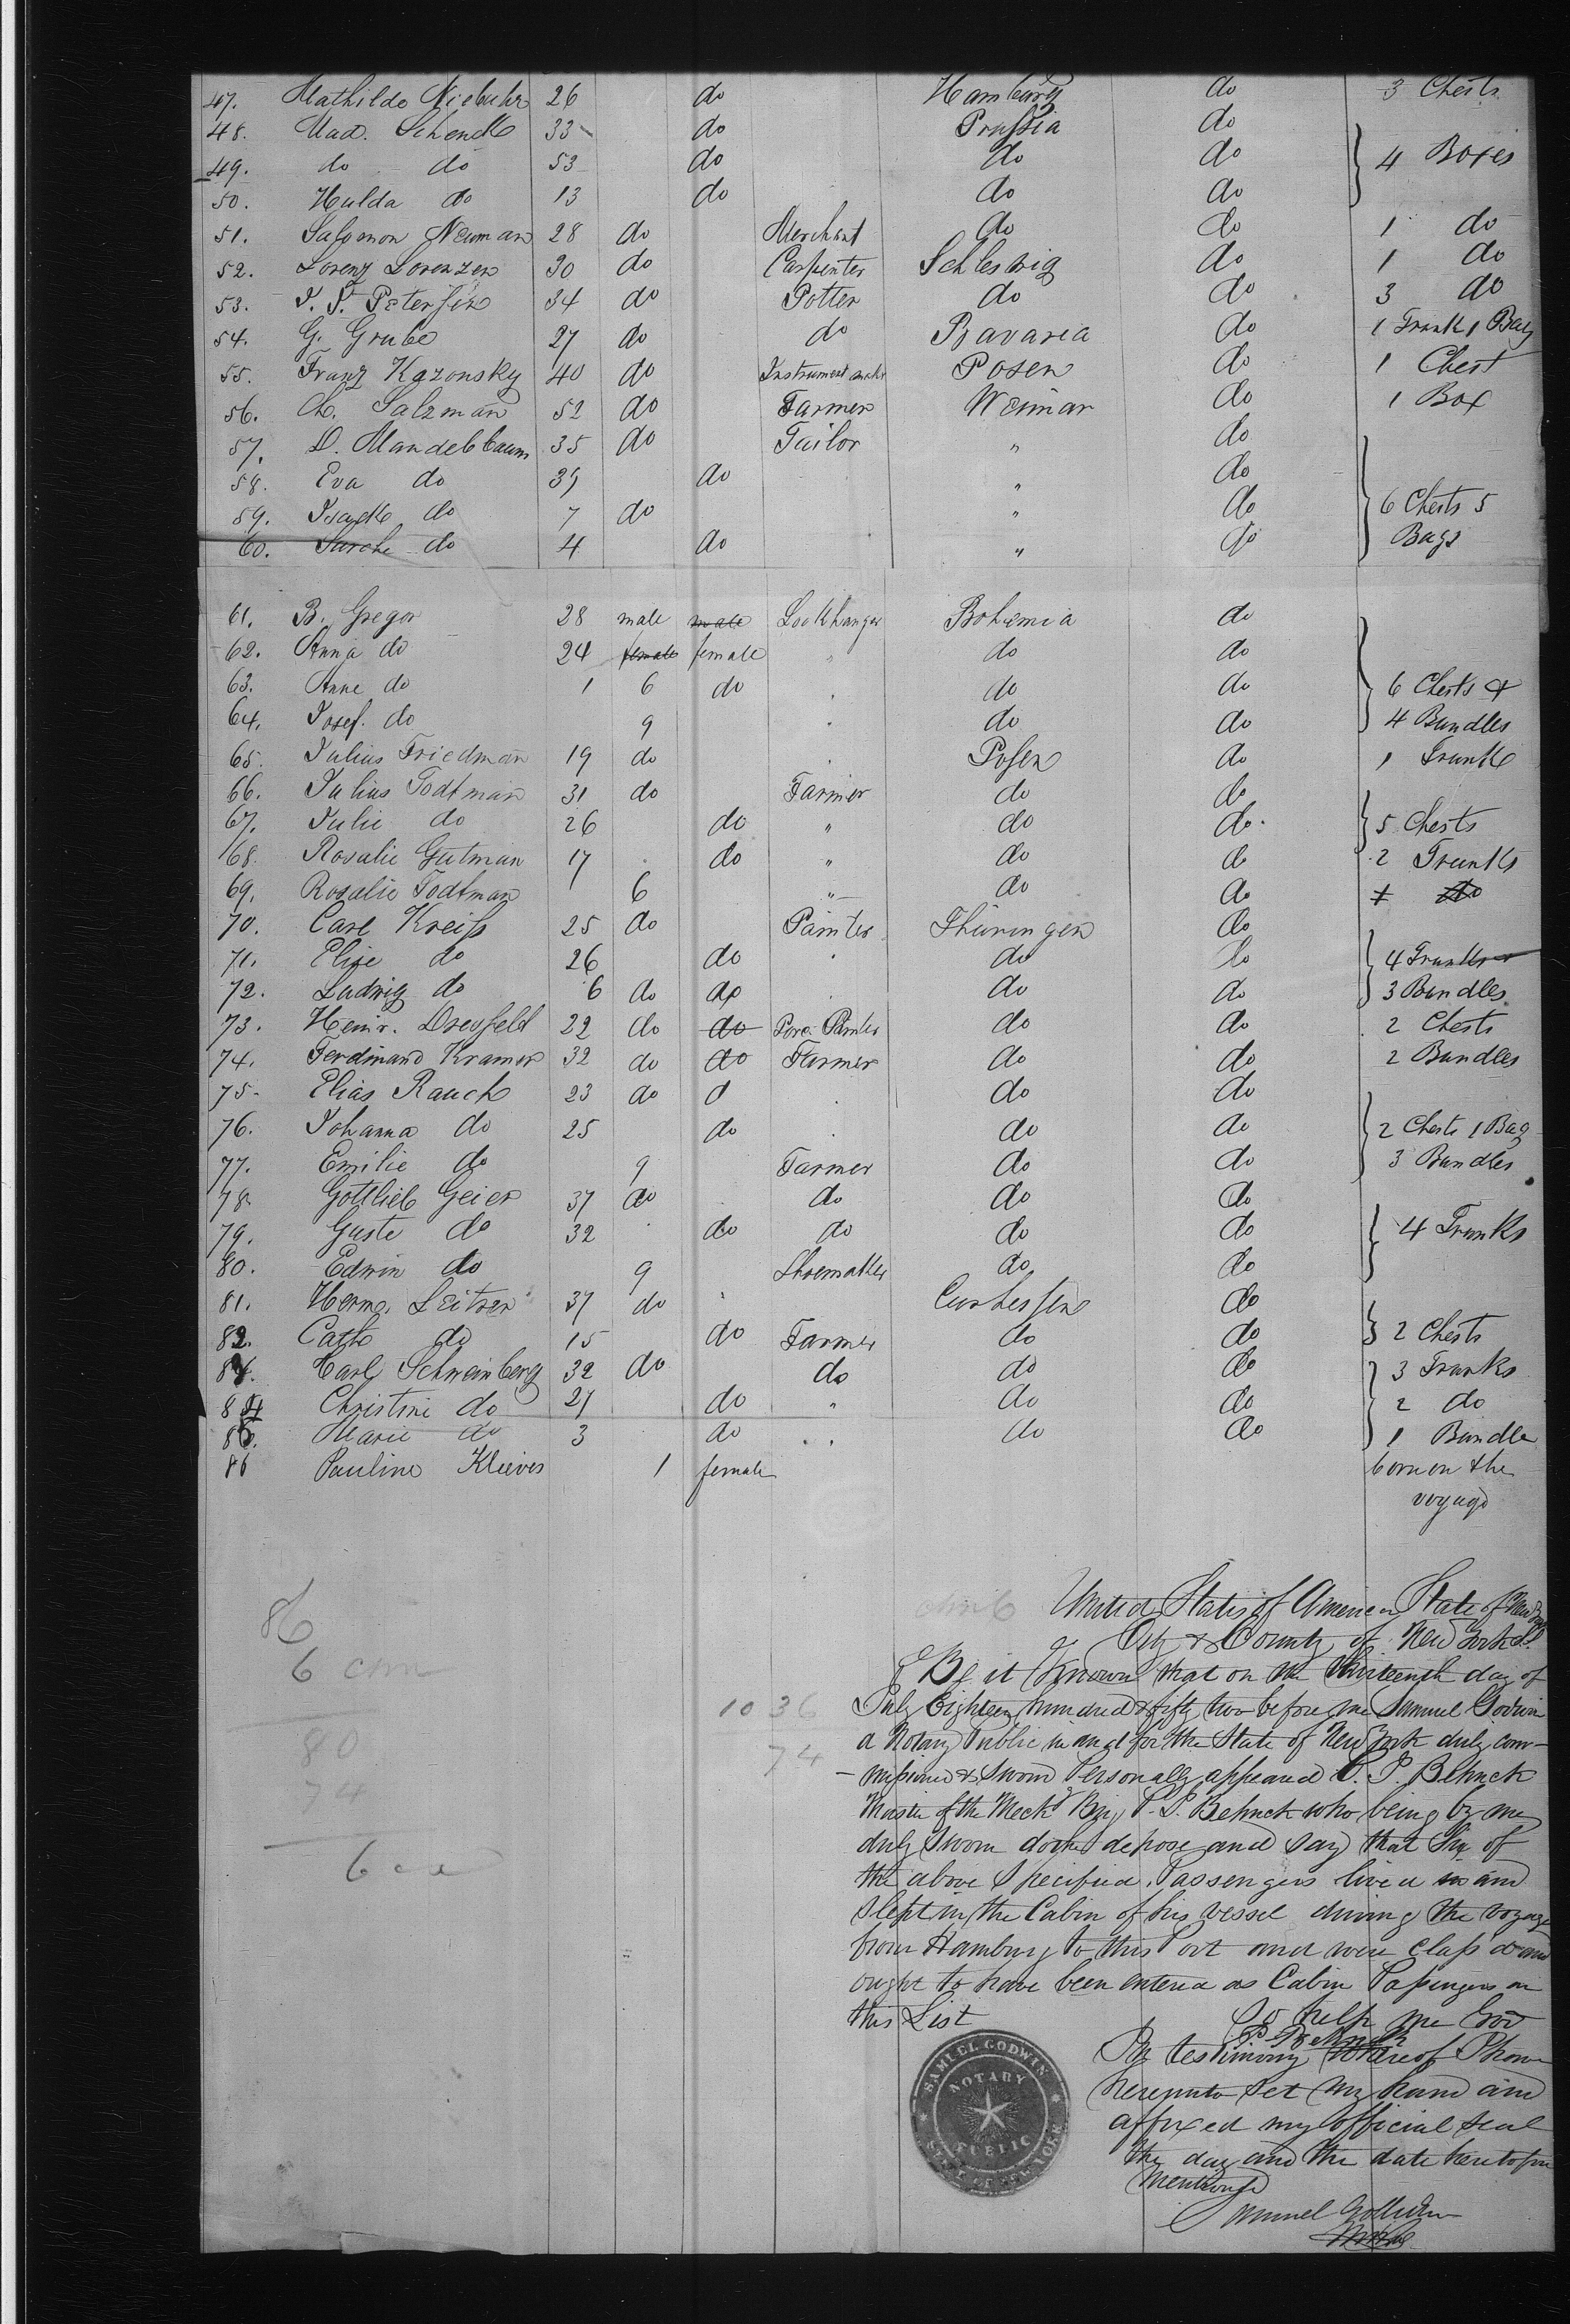 47. Mathilde Niebuhr 26 do Hamburg do 3 Chests
48. Mad. Schenck 33 do Prussia do
49. do do 53 do do do 4 Boxes
50. Hulda do 13 do do do
51. Salomon Neuman 28 do Merchant do do 1 do
52. Lorenz Lorenzen 30 do Carpenter Schleswig do 1 do
53. Petersen 34 do Potter do do 3 do
54. G. Grube 27 do do Bavaria do 1 Trunk 1 Bag
55. Franz Kazonsky 40 do Instrument makr Posen do 1 Chest
56. Ch. Salzman 52 do Farmer Weimar do 1 Box
57. D. Mandelbaum 35 do Tailor " do
58. Eva do 39 do " do
59. Isack do 7 do " do 6 Chests 5
60. Sarche do 4 do " do Bags
61. B. Gregor 28 male male Bohemia do
62. Anna do 24 female female " do do
63. Anne do 1 6 do do do 6 Chests &
64. Josef. do 9 do do 4 Bundles
65. Julius Friedman 19 do Posen do 1 Trunk
66. Julius Todtman 31 do Farmer do do
67. Julie do 26 do " do do. 5 Chests
68. Rosalie Gutman 17 do " do do 2 Trunks
69. Rosalie Todtman 6 " do do do
70. Carl Kreiss 25 do Painter Thuringen do
71. Elise do 26 do do do 4 Trunks
72. Ludwig do 6 do do do do 3 Bundles
73. Heinr. Dresfeld 22 do do Porc. Painter do do 2 Chests
74. Ferdinand Kramer 32 do do Farmer do do 2 Bundles
75. Elias Rauch 23 do d do do
76. Johanna do 25 do do do 2 Chests 1 Bag
77. Emilie do 9 Farmer do do 3 Bundles
78. Gottlieb Geier 37 do do do do
79. Guste do 32 do do do do 4 Trunks
80. Edwin do 9 Shoemaker do do
81. Herm. Leitzer 37 do Curhessen do
82. Cath do 15 do Farmer do do 2 Chests
83. Carl Schweinberg 32 do do do do 3 Trunks
84 Christine do 27 do " do do 2 do
85. Marie do 3 do do do 1 Bundle
86 Pauline Klieves 1 female born on the
voyage
86
6
80
74
6
10 36
74
United States of America State of New York
City & County of New York ss.
Be it Known that on the thirteenth day of
July Eighteen hundred & fifty two before me Samuel Godwin
a Notary Public in and for the State of New York duly com-
missioned & sworn Personally appeared P. P. Behnck
Master of the Meck Brig P. P. Behnck who being by me
duly sworn doth depose and say that Six of
the above Specified Passengers lived in and
slept in the Cabin of his vessel during the voyage
from Hamburg to this Port and were class'd and
ought to have been entered as Cabin Passengers on
this List So help me God
P. Behnck
In testimony Whereof I have
hereunto set my hand and
affixed my official seal
the day and the date heretofore
Mentioned
Samuel Godwin
SAMUEL GODWIN
NOTARY
PUBLIC
CITY OF NEW YORK